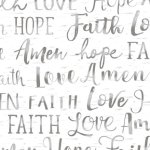 LOVE Hope AMEN
HOPE Faith Love
Amen hope FAITH
FAITH Love Amen
FAITH Love
FAITH LOVE Amen
Hope Faith